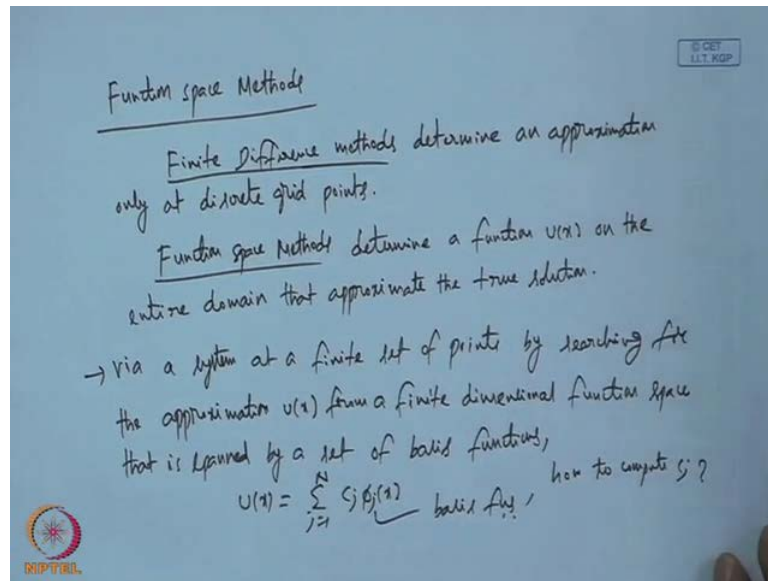 © CET
I.I.T. KGP
Function space Methods
Finite Difference methods determine an approximation
only at discrete grid points.
Function space Methods determine a function U(x) on the
entire domain that approximate the true solution.
→ via a system at a finite set of points by searching for
the approximation U(x) from a finite dimensional function space
that is spanned by a set of basis functions,
U(x) = ∑_{j=1}^{N} Cj ϕj(x) basis fns, how to compute Cj ?
NPTEL